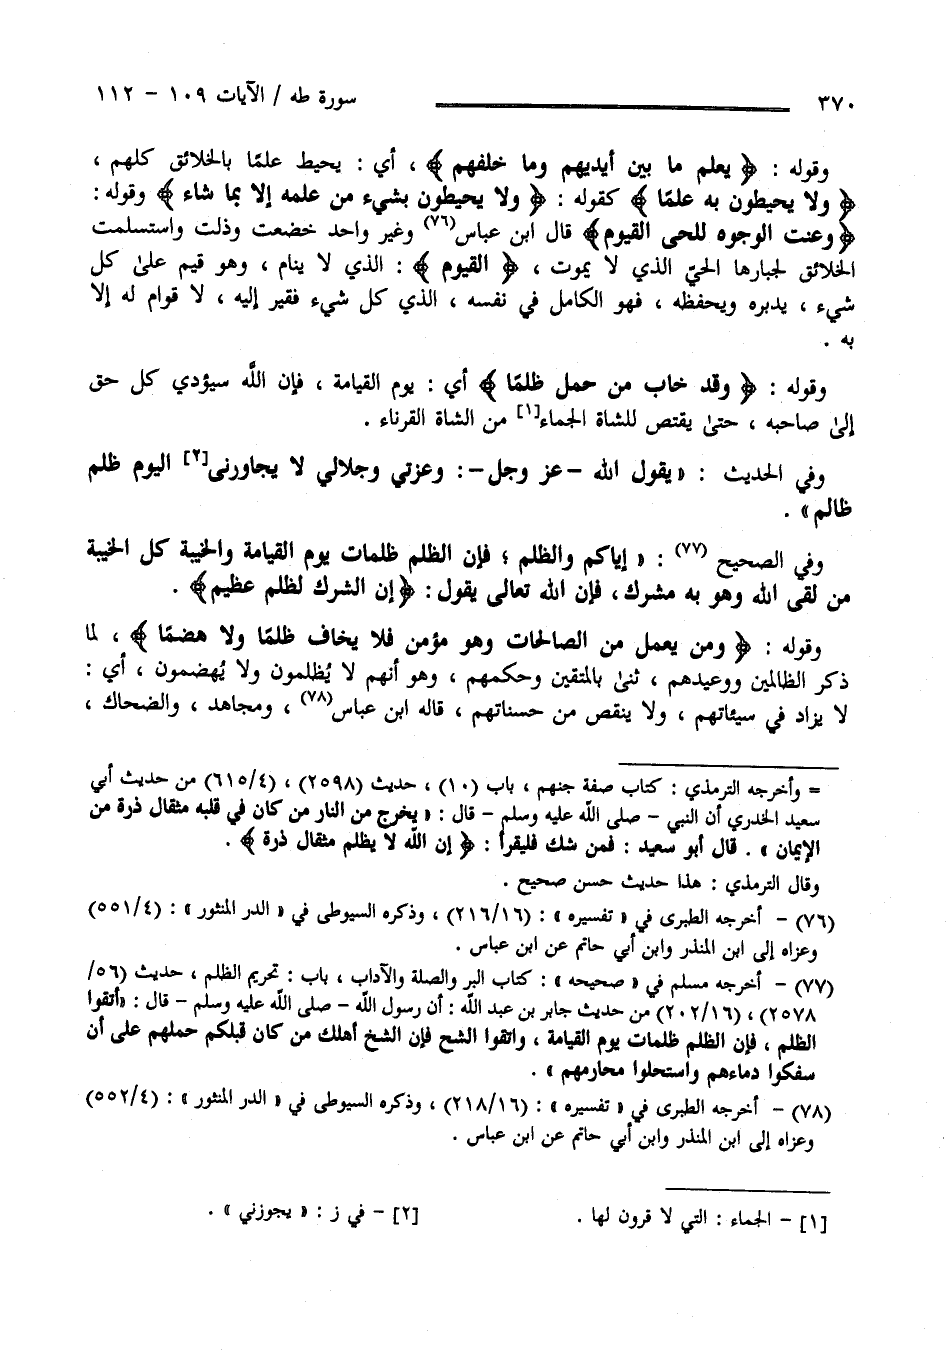 ٣٧٠ سورة طه / الآيات ١٠٩ - ١١٢
وقوله : ﴿ يعلم ما بين أيديهم وما خلفهم ﴾ ، أي : يحيط علمًا بالخلائق كلهم ،
﴿ ولا يحيطون به علمًا ﴾ كقوله : ﴿ ولا يحيطون بشيء من علمه إلا بما شاء ﴾ وقوله :
﴿ وعنت الوجوه للحى القيوم ﴾ قال ابن عباس(٧٦) وغير واحد خضعت وذلت واستسلمت
الخلائق لجبارها الحيّ الذي لا يموت ، ﴿ القيوم ﴾ : الذي لا ينام ، وهو قيم علىٰ كل
شيء ، يدبره ويحفظه ، فهو الكامل في نفسه ، الذي كل شيء فقير إليه ، لا قوام له إلا
به .
وقوله : ﴿ وقد خاب من حمل ظلمًا ﴾ أي : يوم القيامة ، فإن اللَّه سيؤدي كل حق
إلىٰ صاحبه ، حتىٰ يقتص للشاة الجماء[١] من الشاة القرناء .
وفي الحديث : « يقول الله -عز وجل-: وعزتي وجلالي لا يجاورنى[٢] اليوم ظلم
ظالم» .
وفي الصحيح (٧٧) : « إياكم والظلم ؛ فإن الظلم ظلمات يوم القيامة والخيبة كل الخيبة
من لقى الله وهو به مشرك، فإن الله تعالى يقول: ﴿إن الشرك لظلم عظيم﴾ .
وقوله : ﴿ ومن يعمل من الصالحات وهو مؤمن فلا يخاف ظلمًا ولا هضمًا ﴾ ، لما
ذكر الظالمين ووعيدهم ، ثنىٰ بالمتقين وحكمهم ، وهو أنهم لا يُظلمون ولا يُهضمون ، أي :
لا يزاد في سيئاتهم ، ولا ينقص من حسناتهم ، قاله ابن عباس(٧٨) ، ومجاهد ، والضحاك ،
= وأخرجه الترمذي : كتاب صفة جنهم ، باب (١٠) ، حديث (٢٥٩٨) ، (٦١٥/٤) من حديث أبي
سعيد الخدري أن النبي - صلى اللَّه عليه وسلم - قال : « يخرج من النار من كان في قلبه مثقال ذرة من
الإيمان » . قال أبو سعيد : فمن شك فليقرأ : ﴿ إن اللَّه لا يظلم مثقال ذرة ﴾ .
وقال الترمذي : هذا حديث حسن صحيح .
(٧٦) - أخرجه الطبرى في « تفسيره » : (٢١٦/١٦) ، وذكره السيوطى في « الدر المنثور » : (٥٥١/٤)
وعزاه إلى ابن المنذر وابن أبي حاتم عن ابن عباس .
(٧٧) - أخرجه مسلم في « صحيحه » : كتاب البر والصلة والآداب ، باب : تحريم الظلم ، حديث (٥٦/
٢٥٧٨) ، (٢٠٢/١٦) من حديث جابر بن عبد اللَّه : أن رسول اللَّه - صلى اللَّه عليه وسلم - قال : «أتقوا
الظلم ، فإن الظلم ظلمات يوم القيامة ، واتقوا الشح فإن الشح أهلك من كان قبلكم حملهم على أن
سفكوا دماءهم واستحلوا محارمهم » .
(٧٨) - أخرجه الطبرى في « تفسيره » : (٢١٨/١٦) ، وذكره السيوطى في « الدر المنثور » : (٥٥٢/٤)
وعزاه إلى ابن المنذر وابن أبي حاتم عن ابن عباس .
[١] - الجماء : التي لا قرون لها . [٢] - في ز : « يجوزني » .